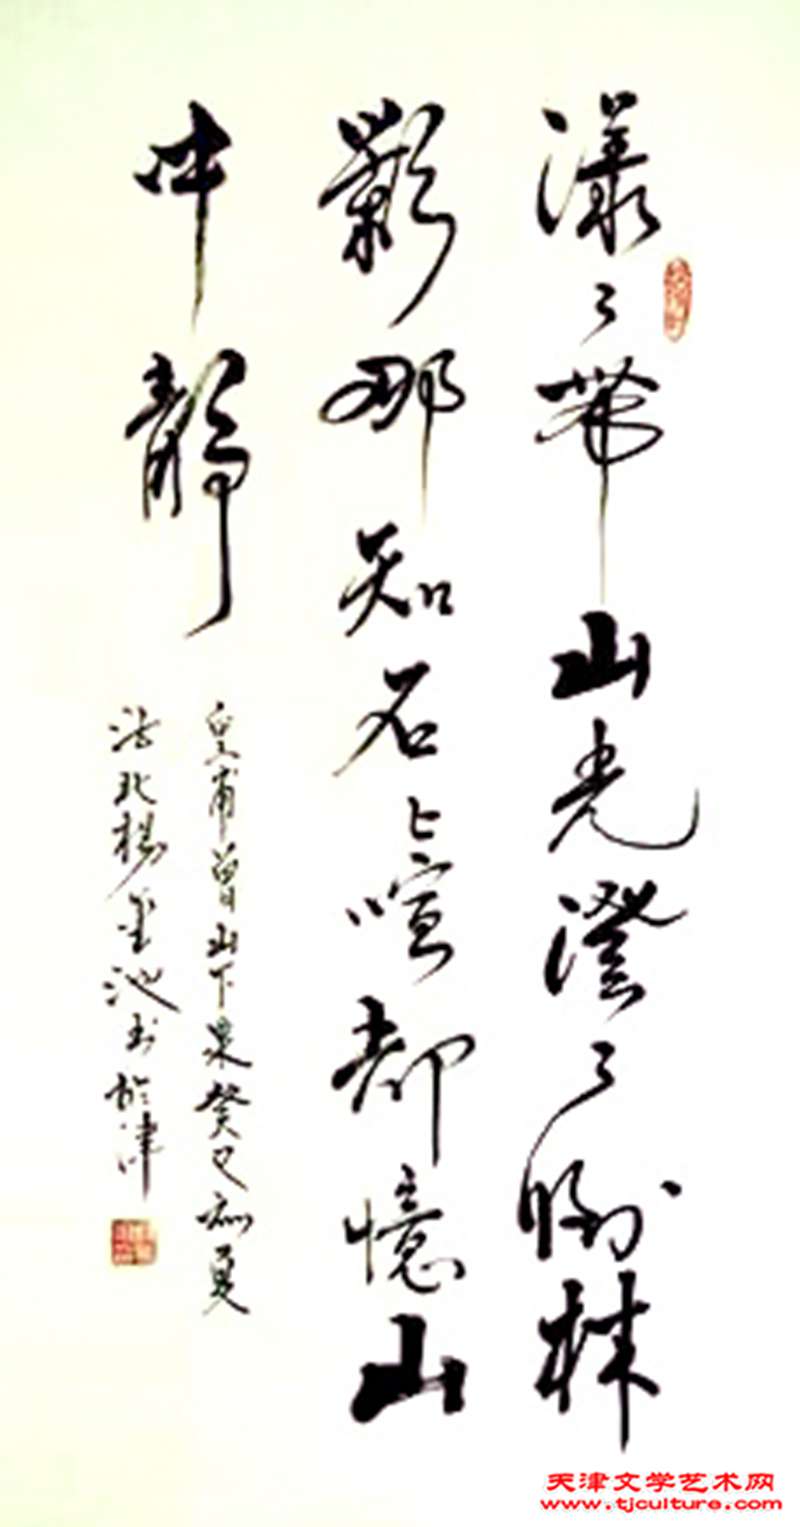 漾々帶山光澄々倒林
影那知石上喧却憶山
中靜
皇甫曾山下泉癸巳初夏
北楊金池书於津
天津文学艺术网
www.tjculture.com